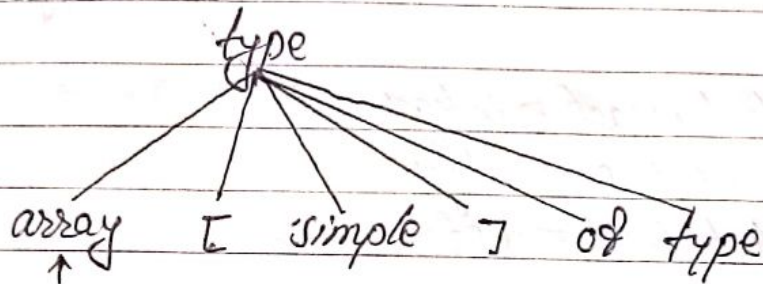 type
array [ simple ] of type
↑